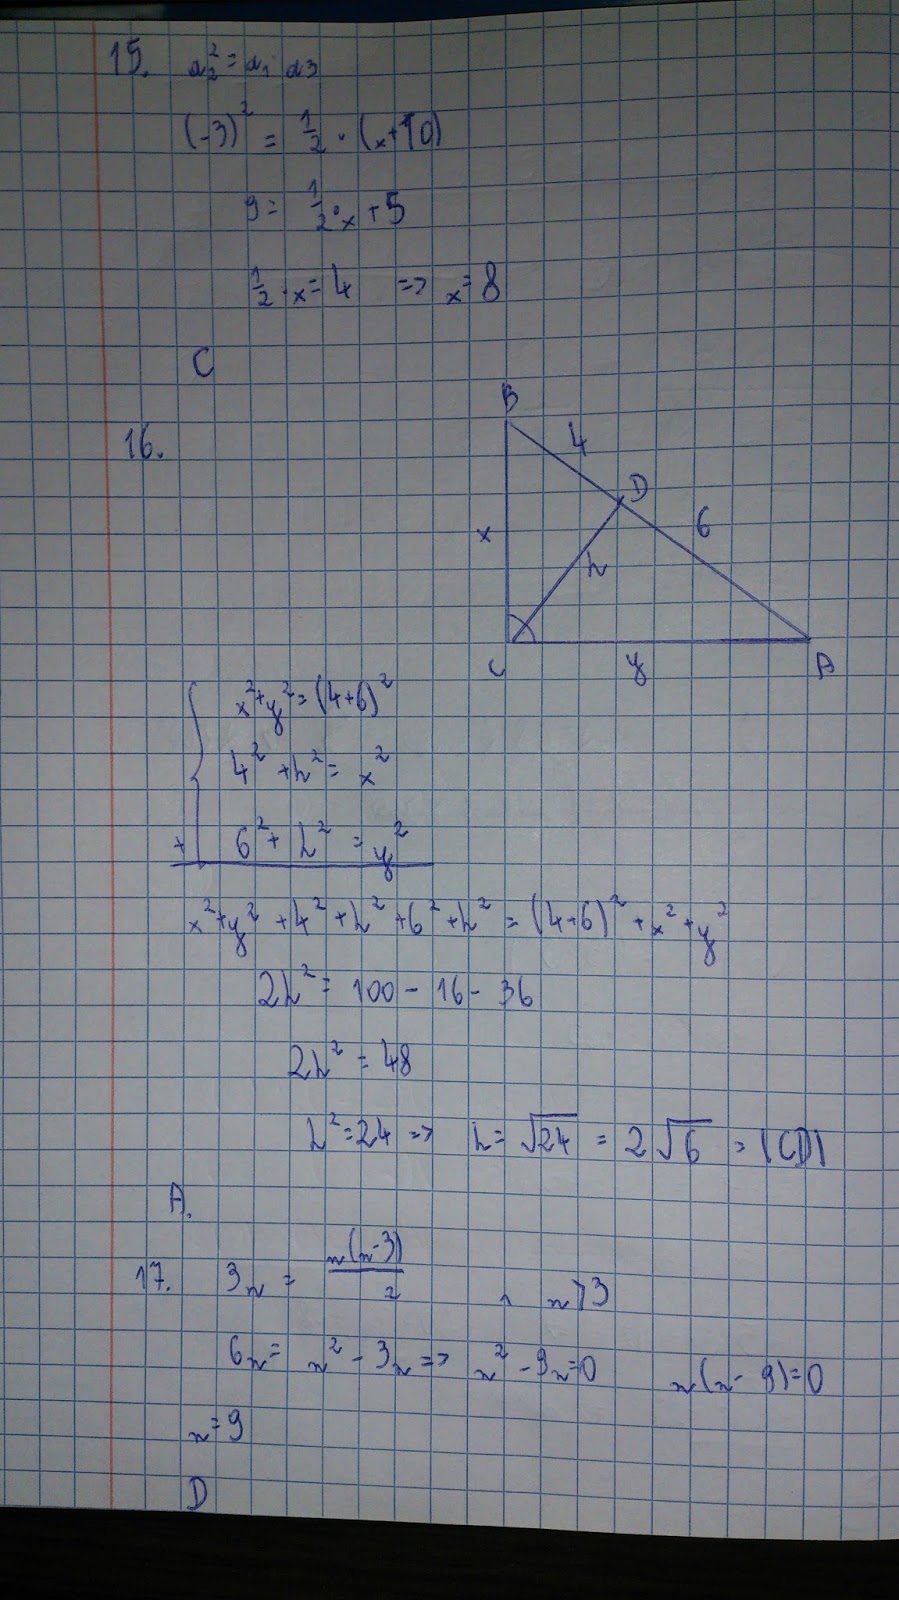 15. a₂² = a₁ a₃
(-3)² = 1/2 · (x+10)
9 = 1/2 · x + 5
1/2 · x = 4 => x = 8
C
16.
B
4
D
x
6
h
C
y
A
x² + y² = (4+6)²
4² + h² = x²
+ 6² + h² = y²
x² + y² + 4² + h² + 6² + h² = (4+6)² + x² + y²
2h² = 100 - 16 - 36
2h² = 48
h² = 24 => h = √24 = 2√6 = |CD|
A.
17. 3n = n(n-3)/2 , n>3
6n = n² - 3n => n² - 9n = 0 n(n-9)=0
n = 9
D